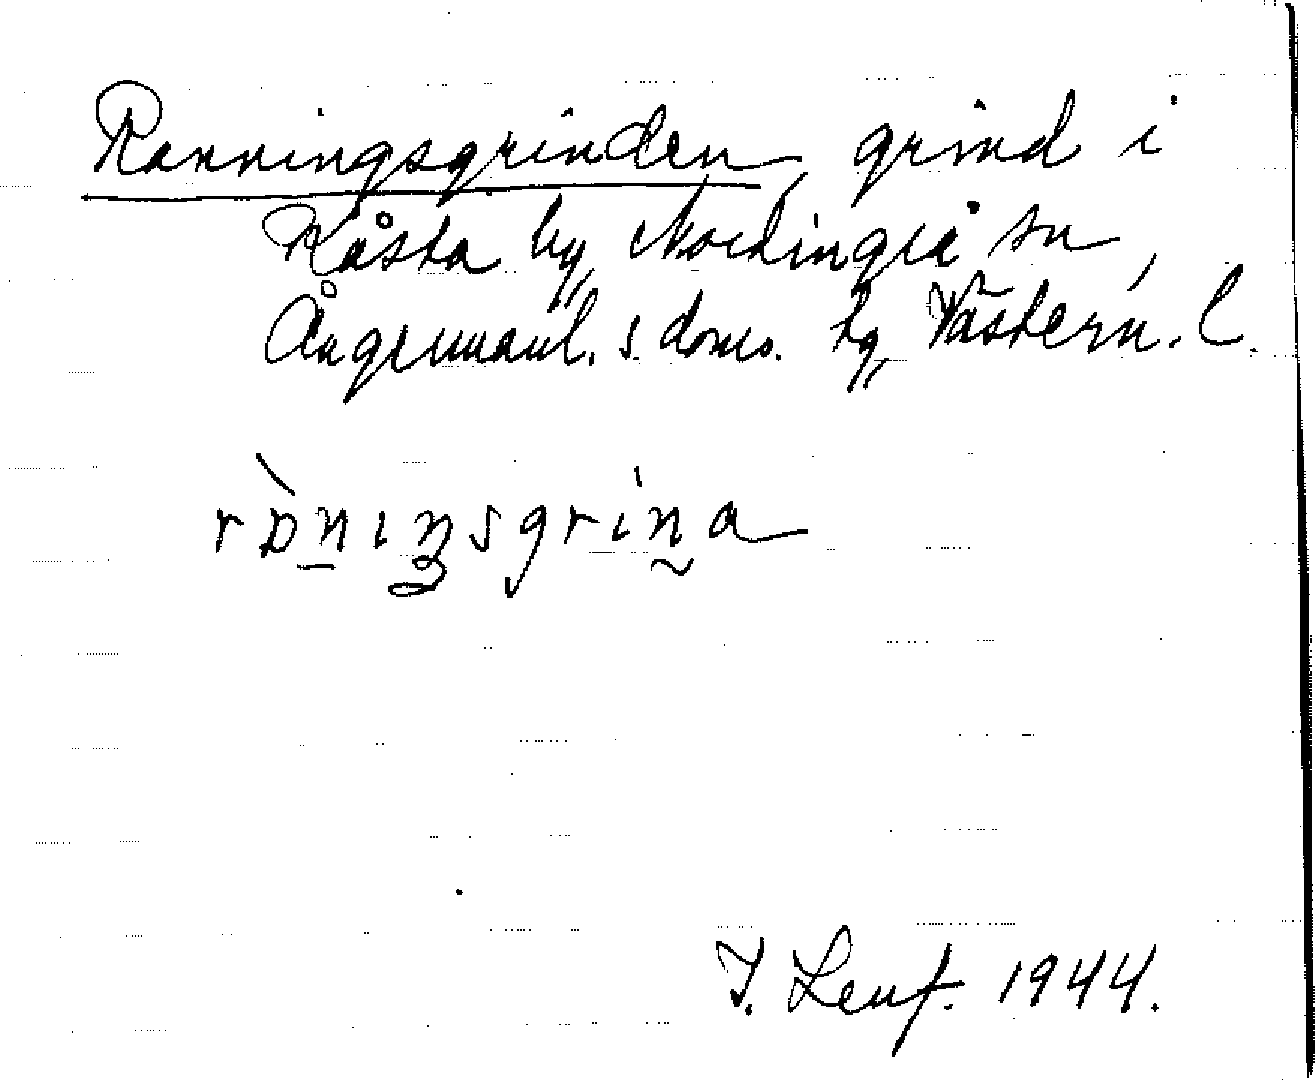 Ranningsgrinden, grind i
Råsta by, Nordingrå sn,
Ångermanl. s. doms. tg, Västern. l.
ròningsgrina
I. Leuf. 1944.